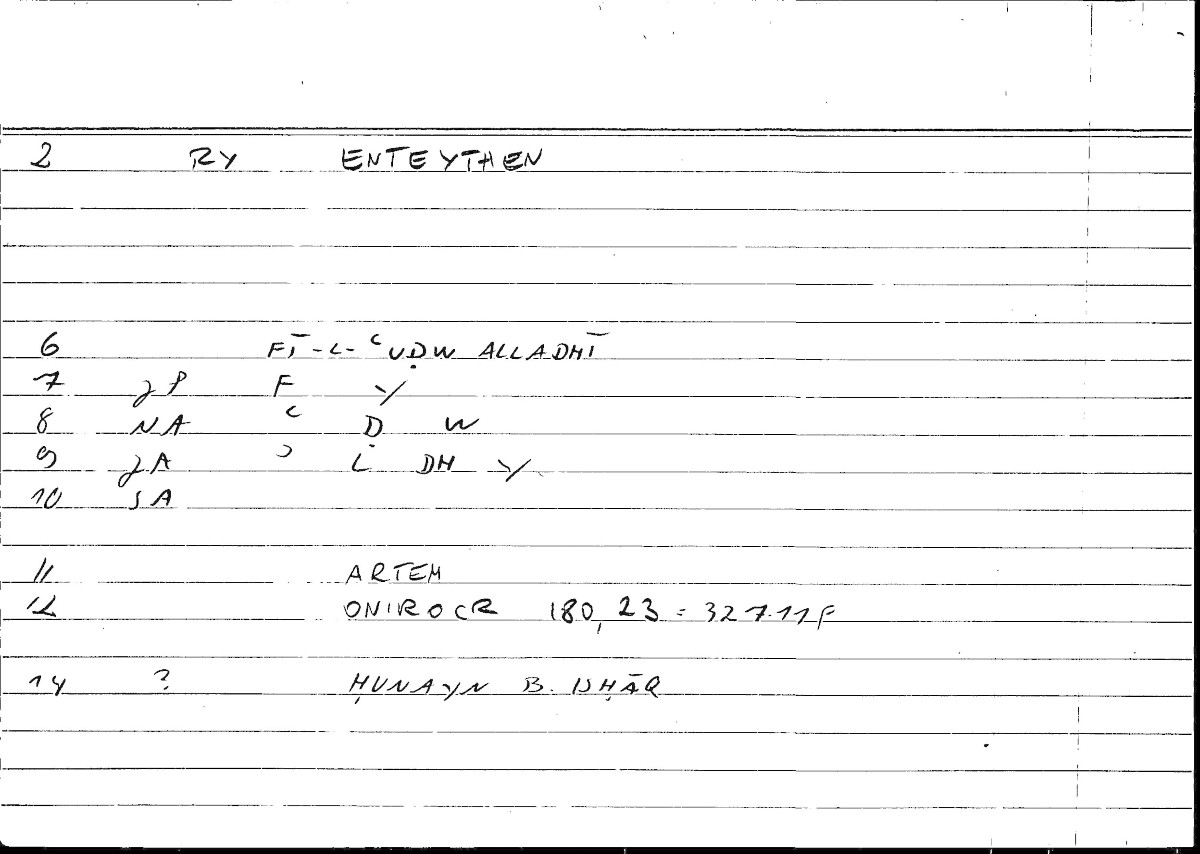 2 RY ENTEYTHEN
6 FĪ-L-ʿUḌW ALLADHĪ
7 JP F Y
8 NA ʿ Ḍ W
9 JA ʾ L DH Y
10 SA
11 ARTEM
12 ONIROCR 180,23 = 327.11F
14 ? ḤUNAYN B. ISḤĀQ